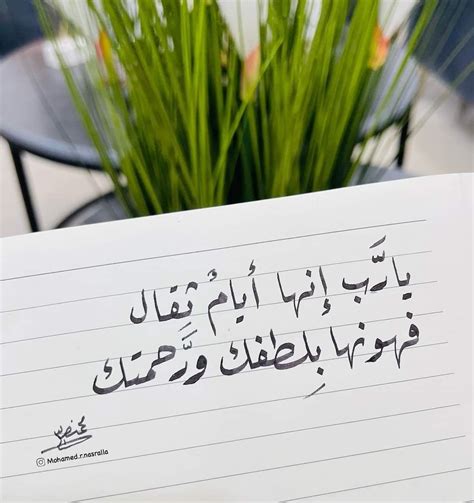 يارَّب إنها أيامٌ ثِقال
فهونها بِلطفك ورَّحمتك
Mohamed.r.nasralla